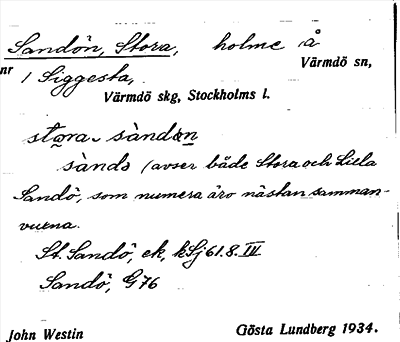 Sandön, Stora, holme å
nr 1 Siggesta, Värmdö sn,
Värmdö skg, Stockholms l.
stora sàndön
sàndö (avser både Stora och Lilla
Sandö, som numera äro nästan samman-
vuxna.
St. Sandö, ek, kSj 61.8.IV
Sandö, G76
John Westin Gösta Lundberg 1934.